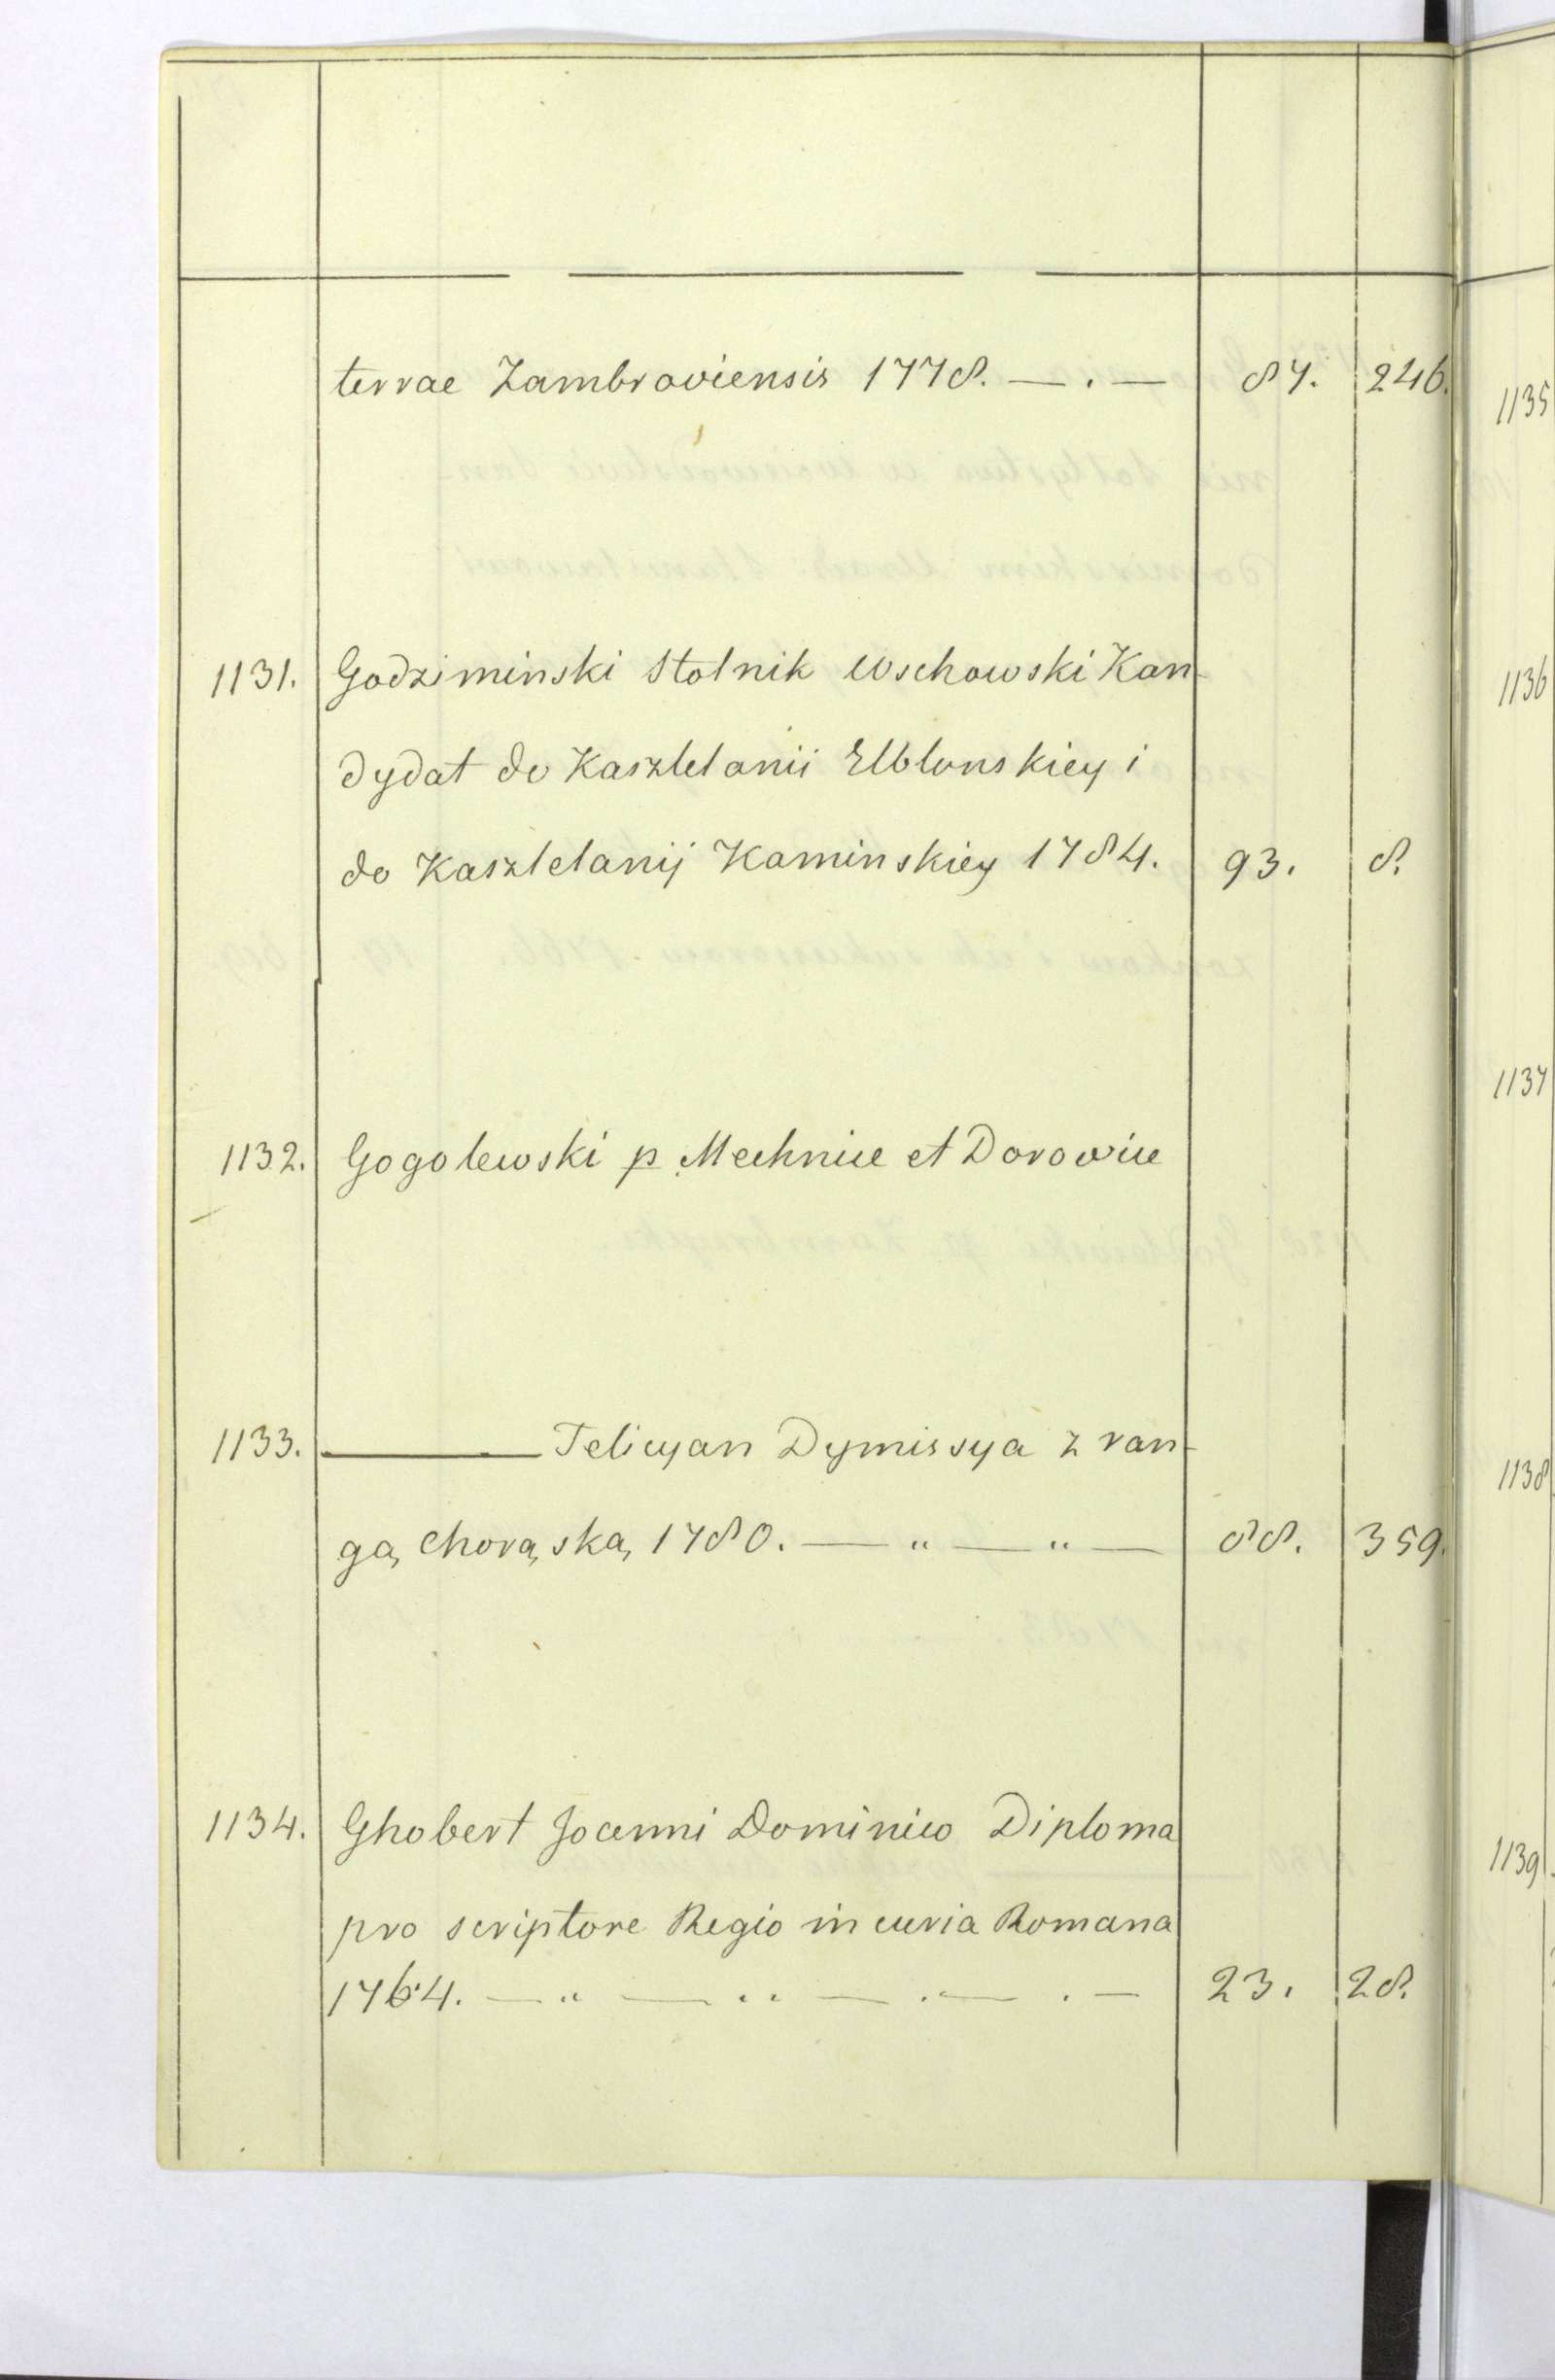 terrae Zambroviensis 1778. — . — 87. 246.
1131. Godziminski Stolnik Wschowski Kan-
dydat do Kasztelanii Elblonskiey i
do Kasztelanij Kaminskiey 1784. 93. 8.
1132. Gogolewski p Mechnice et Dorowice
1133. ——— Felicyan Dymissya z ran-
gą chorąską 1780. — „ — „ — 88. 359.
1134. Ghobert Joanni Dominico Diploma
pro scriptore Regio in curia Romana
1764. — „ — „ — . — . — 23. 28.
1135
1136
1137
1138
1139.